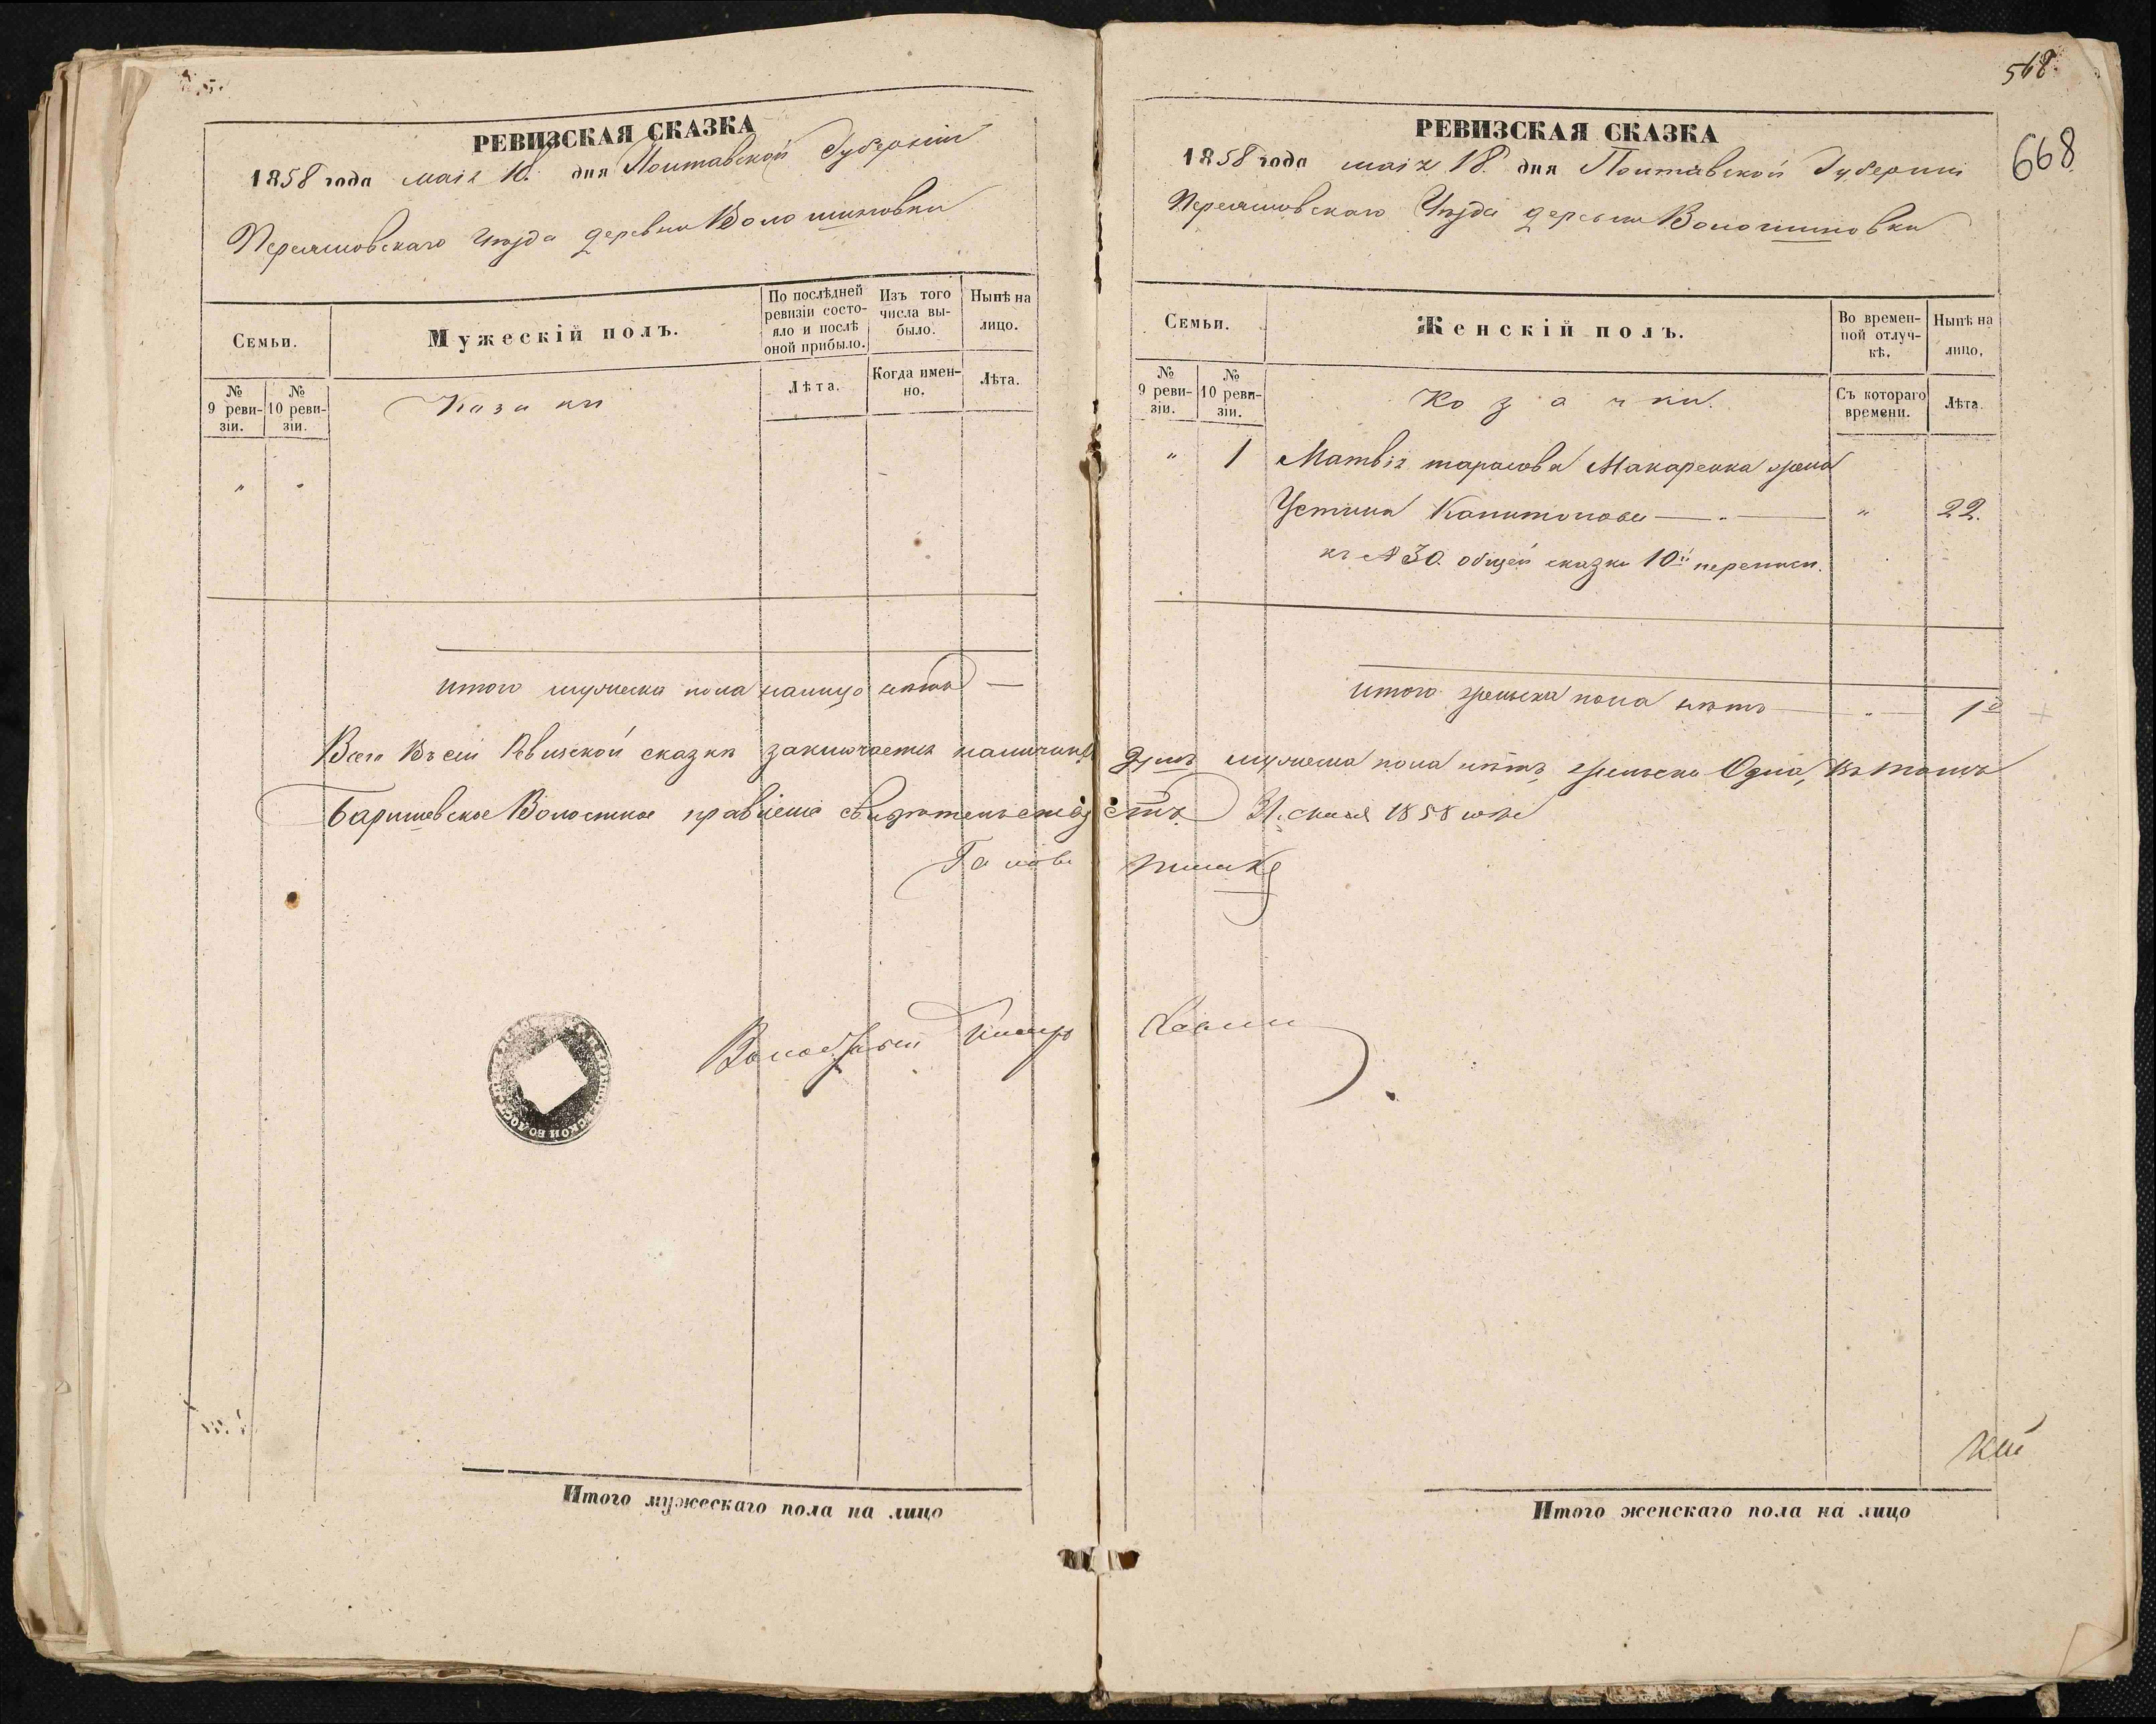 РЕВИЗСКАЯ СКАЗКА
1858 года мая 18. дня Полтавской Губерніи
Переяшовскаго Уѣзда деревни Волошиновки
Семьи.
Мужескій полъ.
По послѣдней ревизіи состояло и послѣ оной прибыло.
Изъ того числа выбыло.
Нынѣ на лицо.
№ 9 ревизіи.
№ 10 ревизіи.
Козаки
Лѣта.
Когда именно.
Лѣта.
" "
итого мужеска пола налицо нѣтъ —
Итого мужескаго пола на лицо
568.
668
РЕВИЗСКАЯ СКАЗКА
1858 года мая 18. дня Полтавской Губерніи
Переяшовскаго Уѣзда деревни Волошиновки
Семьи.
Женскій полъ.
Во временной отлучкѣ.
Нынѣ на лицо.
№ 9 ревизіи.
№ 10 ревизіи.
Козачки.
Съ котораго времени.
Лѣта.
" 1 Матвія тарасова Макаренка жена
Устина Капитонова — " 22.
къ № 30. общей сказки 10й переписи.
итого женска пола нѣтъ — " — 1
Всего въ сей Ревизской сказкѣ заключается наличныхъ душъ мужеска пола нѣтъ, женска Одна, въ томъ
Баришевское Волостное правленіе свидѣтельствуетъ. 31. мая 1858 года
Голова
Волостный Писарь
Итого женскаго пола на лицо